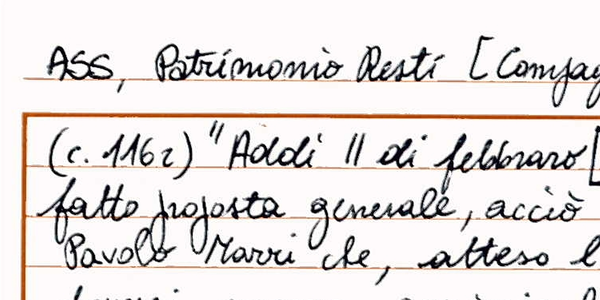 ASS, Patrimonio Resti [Compag
(c. 116r) "Addì 11 di febbraro [
fatto proposta generale, acciò
Pavolo Marri che, atteso l